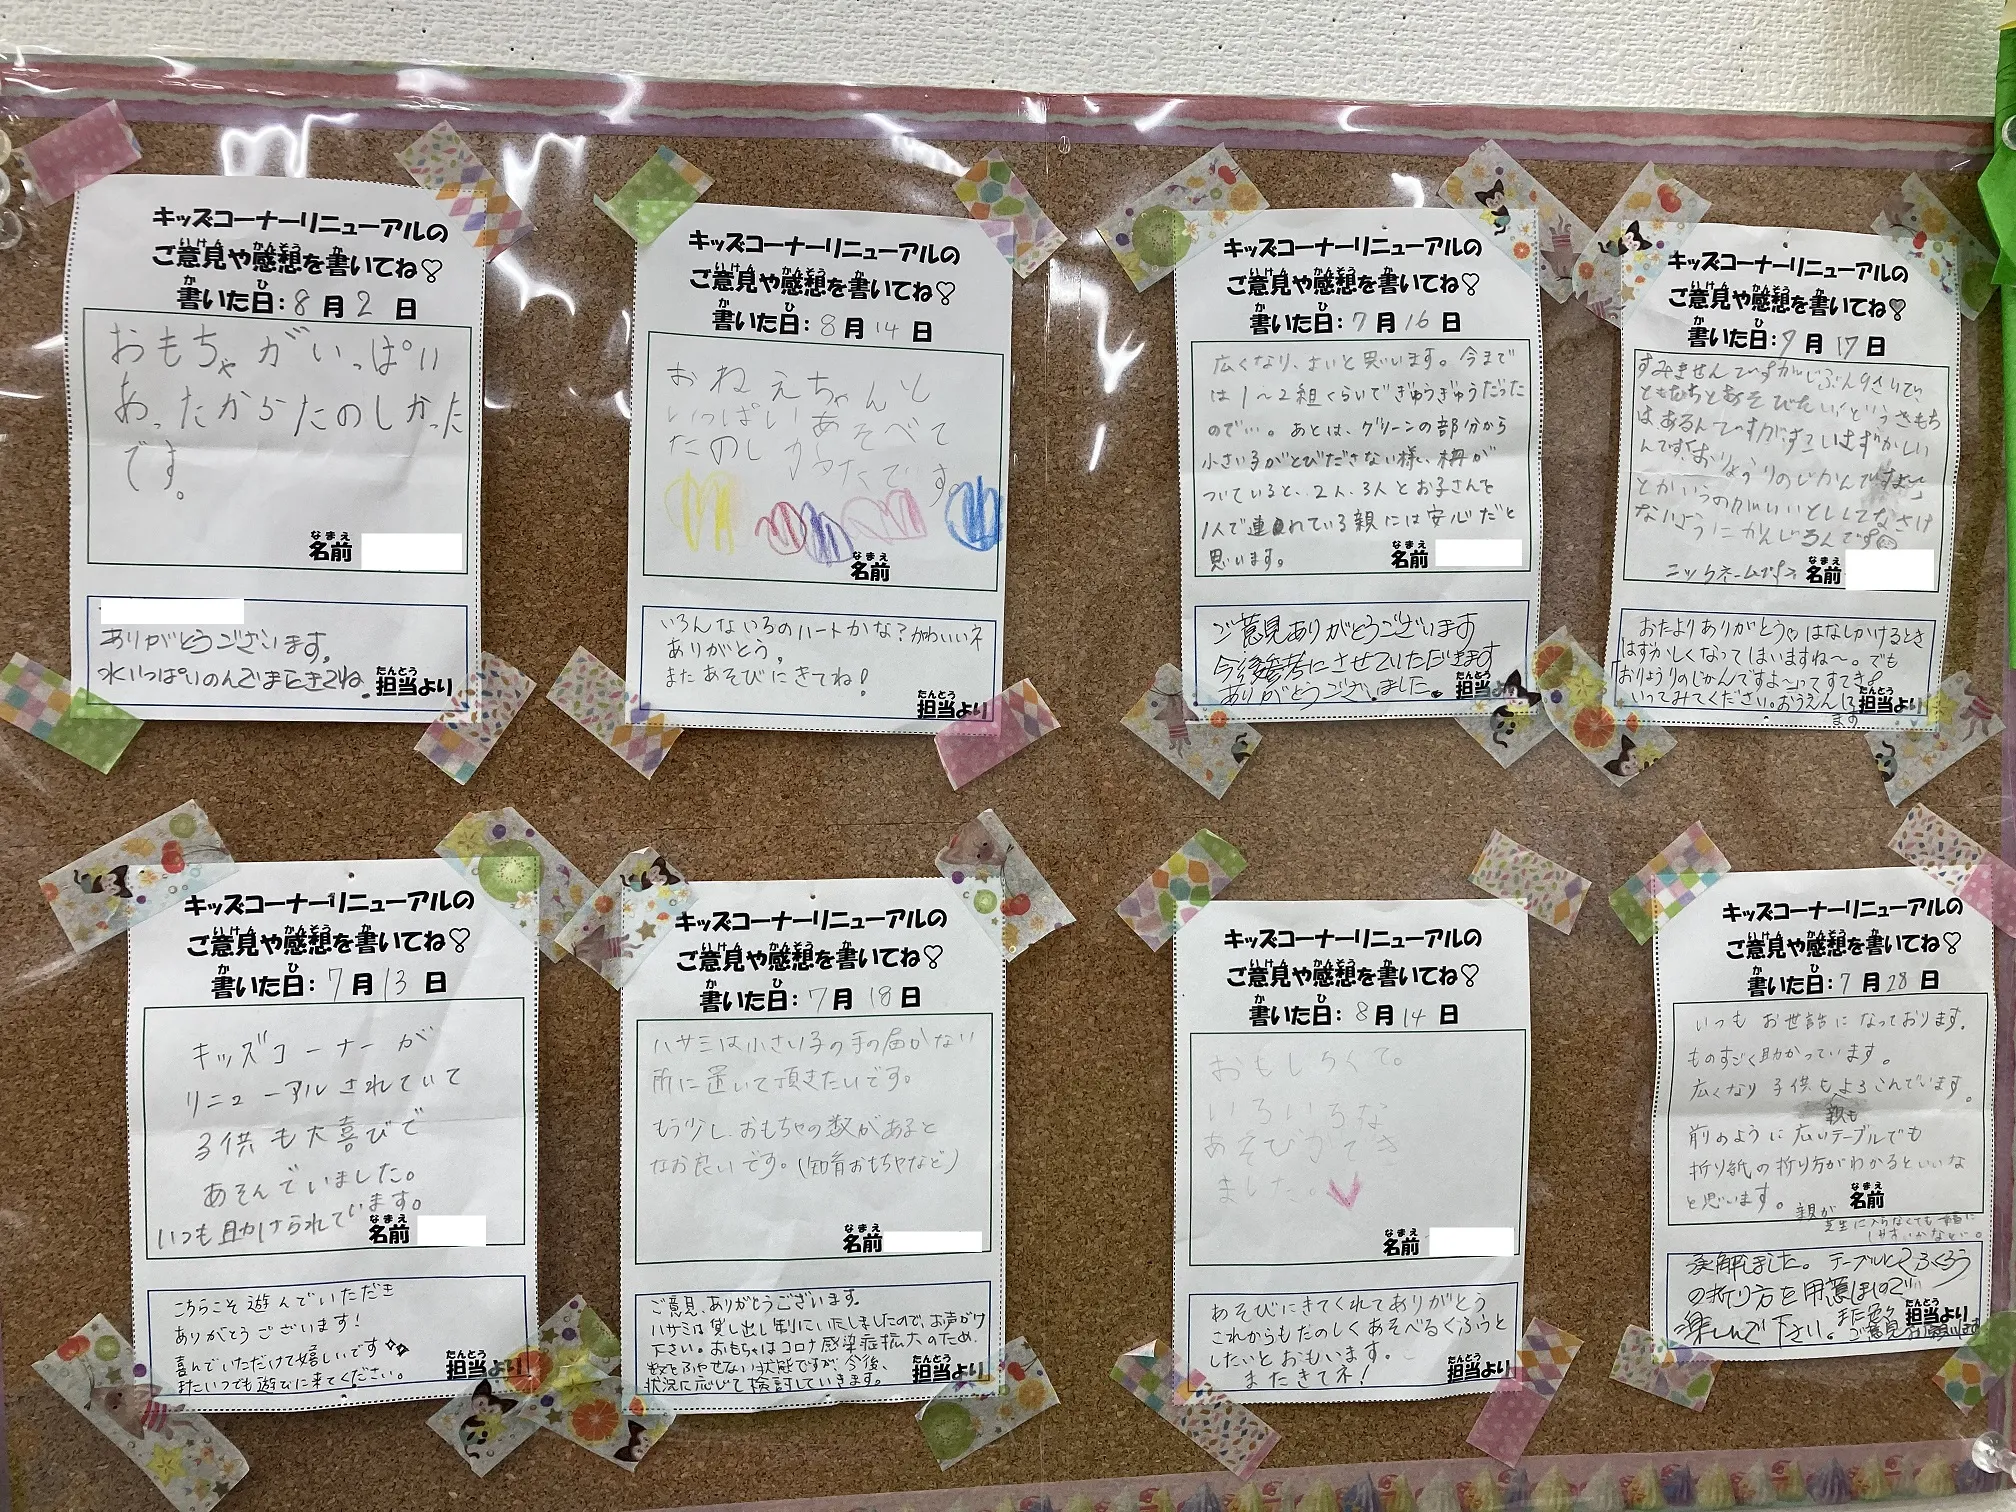 キッズコーナーリニューアルの
ご意見や感想を書いてね♡
書いた日:8月2日
おもちゃがいっぱい
あったからたのしかった
です。
名前
ありがとうございます。
水いっぱいのんでまたきてね。
担当より
キッズコーナーリニューアルの
ご意見や感想を書いてね♡
書いた日:8月14日
おねえちゃんと
いっぱいあそべて
たのしかったです。
名前
いろんないろのハートかな?かわいいネ
ありがとう。
またあそびにきてね!
担当より
キッズコーナーリニューアルの
ご意見や感想を書いてね♡
書いた日:7月16日
広くなり、よいと思います。今まで
は1〜2組くらいでぎゅうぎゅうだった
ので…。あとは、グリーンの部分から
小さい子がとびださない様、柵が
ついていると、2人、3人とお子さんを
1人で連れている親には安心だと
思います。
名前
ご意見ありがとうございます
今後参考にさせていただきます
ありがとうございました。
担当より
キッズコーナーリニューアルの
ご意見や感想を書いてね♡
書いた日:9月17日
すみませんですがじぶん9さいでい
ともだちとあそびたい!というきもち
はあるんですがすごいはずかしい
んです、「おりょうりのじかんですよ〜」
とかいうのがいいとししてなさけ
ないようにかんじるんです
ニックネームです→名前
おたよりありがとう♡はなしかけるとき
はずかしくなってしまいますね〜。でも
「おりょうりのじかんですよ〜」ってすてき♪
いってみてください。おうえんし
ます
担当より
キッズコーナーリニューアルの
ご意見や感想を書いてね♡
書いた日:7月13日
キッズコーナーが
リニューアルされていて
子供も大喜びで
あそんでいました。
いつも助けられています。
名前
こちらこそ遊んでいただき
ありがとうございます!
喜んでいただけて嬉しいです
またいつでも遊びに来てください。
担当より
キッズコーナーリニューアルの
ご意見や感想を書いてね♡
書いた日:7月18日
ハサミは小さい子の手の届かない
所に置いて頂きたいです。
もう少し、おもちゃの数があると
なお良いです。(知育おもちゃなど)
名前
ご意見、ありがとうございます。
ハサミは貸し出し制にいたしましたので、お声がけ
下さい。おもちゃはコロナ感染症拡大のため、
数をふやせない状態ですが、今後、
状況に応じて検討していきます。
担当より
キッズコーナーリニューアルの
ご意見や感想を書いてね♡
書いた日:8月14日
おもしろくて。
いろいろな
あそびができ
ました。
名前
あそびにきてくれてありがとう
これからもたのしくあそべるくふうと
したいとおもいます。
またきてネ!
担当より
キッズコーナーリニューアルの
ご意見や感想を書いてね♡
書いた日:7月28日
いつもお世話になっております。
ものすごく助かっています。
広くなり子供もよろこんでいます。
親も
前のように広いテーブルでも
折り紙の折り方がわかるといいな
と思います。
親が
芝生に入らなくても一緒に
しやすいかなと。
名前
了解しました。テーブルにもふくろう
の折り方を用意しますので
楽しんで下さい。
担当より